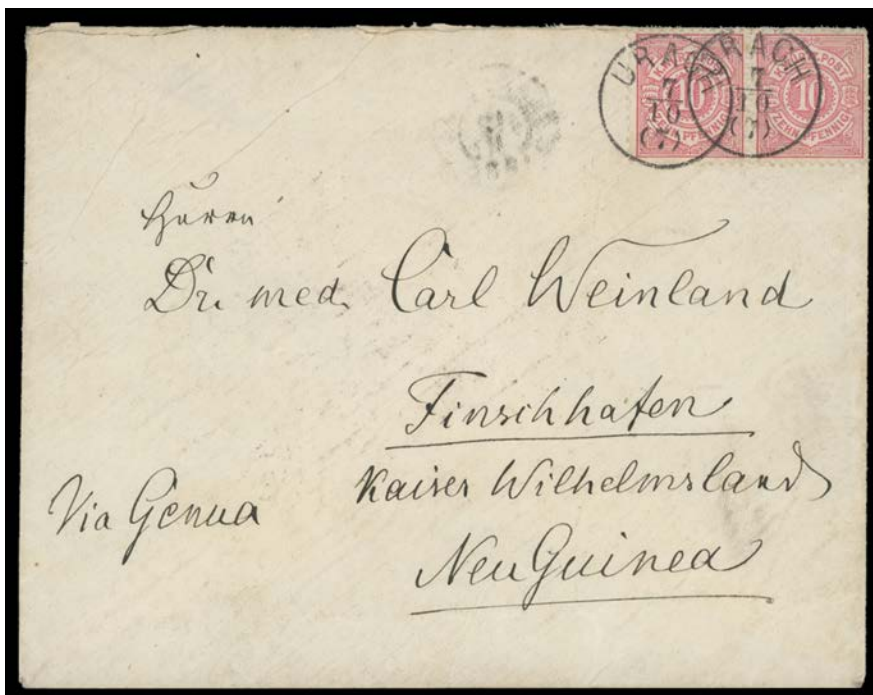 URACH
7
10
(7)
URACH
7
10
(7)
K.W. POST
10
ZEHN PFENNIG
K.W. POST
10
ZEHN PFENNIG
Herrn
Dr. med. Carl Weinland
Finschhafen
Kaiser Wilhelmsland
Neu Guinea
Via Genua